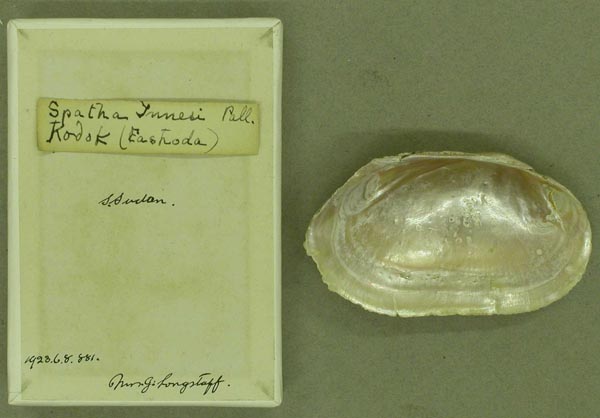 Spatha Innesi Pall.
Kodok (Fashoda)
S. Sudan.
1923.6.8.881.
Mrs. G. Longstaff.